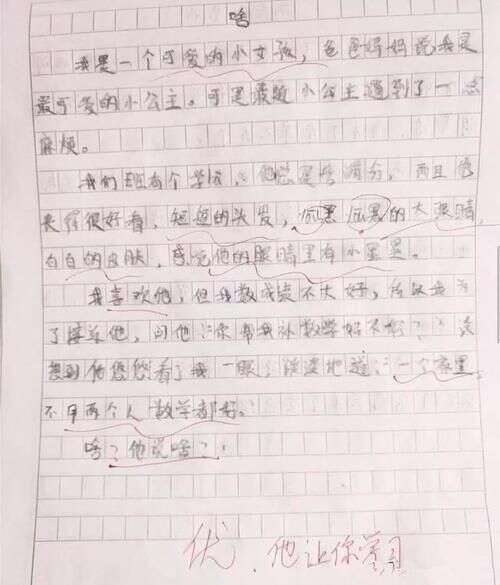 啥
我是一个可爱的小女孩，爸爸妈妈说我是
最可爱的小公主。可是最近小公主遇到了一点
麻烦。
我们班有个学霸，他总是考满分，而且他
长得很好看，短短的头发，底黑底黑的大眼睛，
白白的皮肤，感觉他的眼睛里有小星星。
我喜欢他，但我数成绩不大好，所以我为
了接近他，问他：你帮我补数学好不好？没
想到他悠悠看了我一眼，淡漠地道：一个家里，
不用两个人数学都好。
啥？他说啥？
优，他让你学习